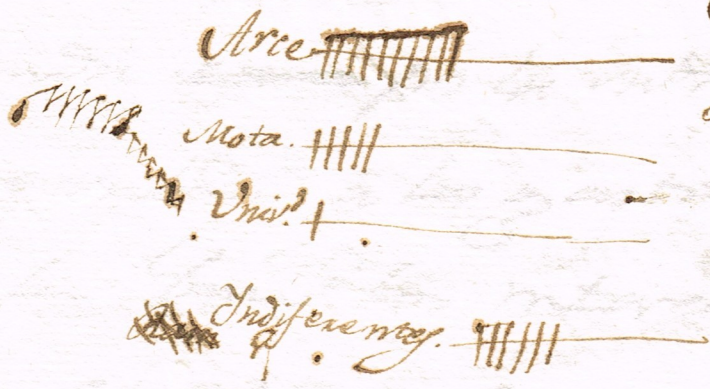 Arce
Mota.
Univ.d
Indiferentes.